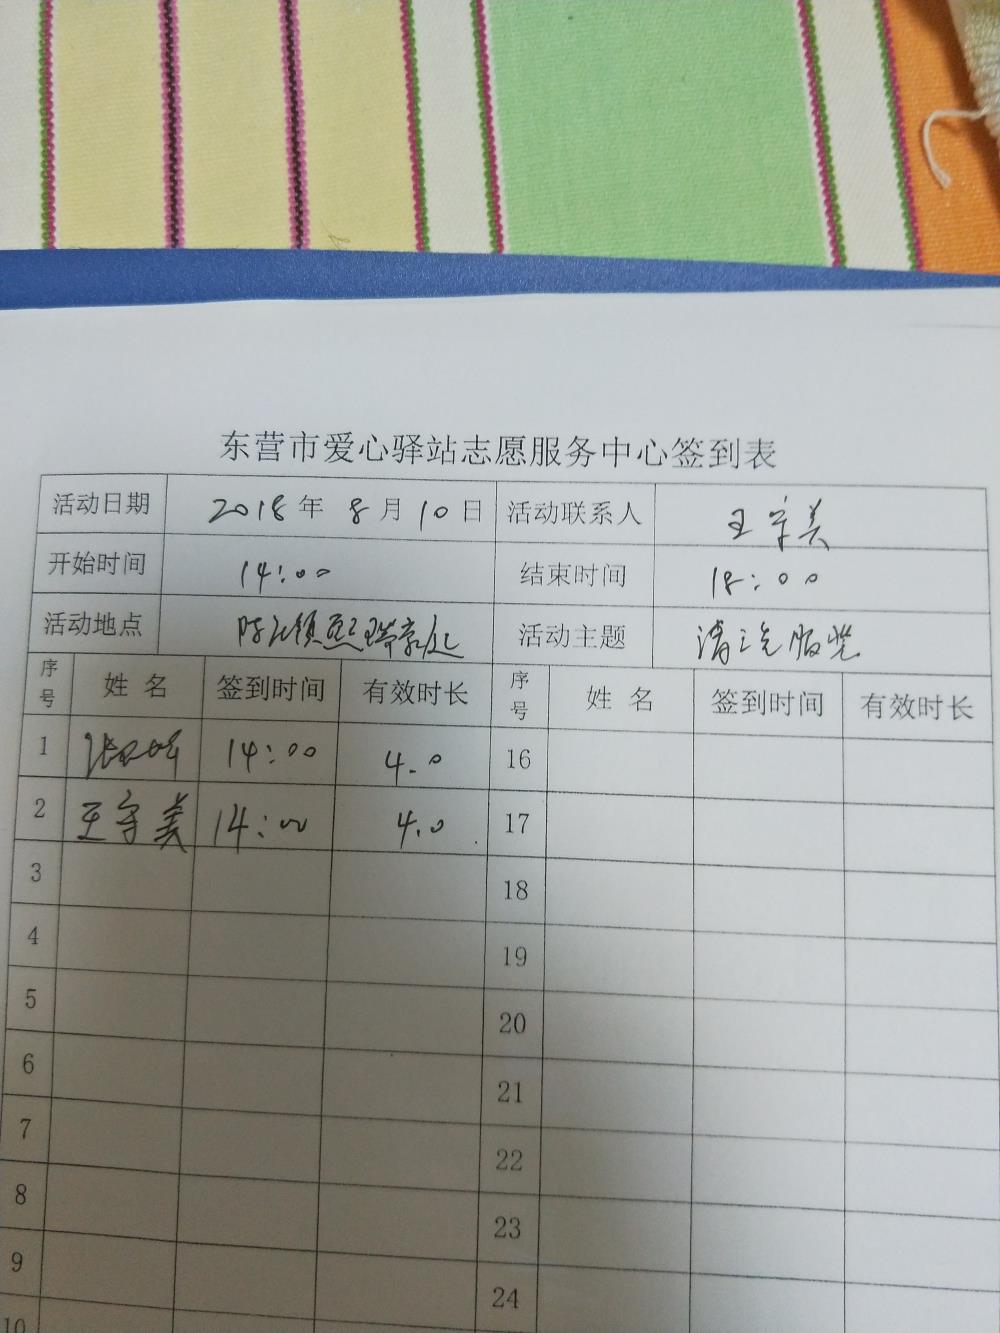 东营市爱心驿站志愿服务中心签到表
活动日期 2018年 8月 10日 活动联系人 王守美
开始时间 14:00 结束时间 18:00
活动地点 活动主题 清洗服装
序号 姓 名 签到时间 有效时长 序号 姓 名 签到时间 有效时长
1 14:00 4.0 16
2 王守美 14:00 4.0 17
3 18
4 19
5 20
6 21
7 22
8 23
9 24
10